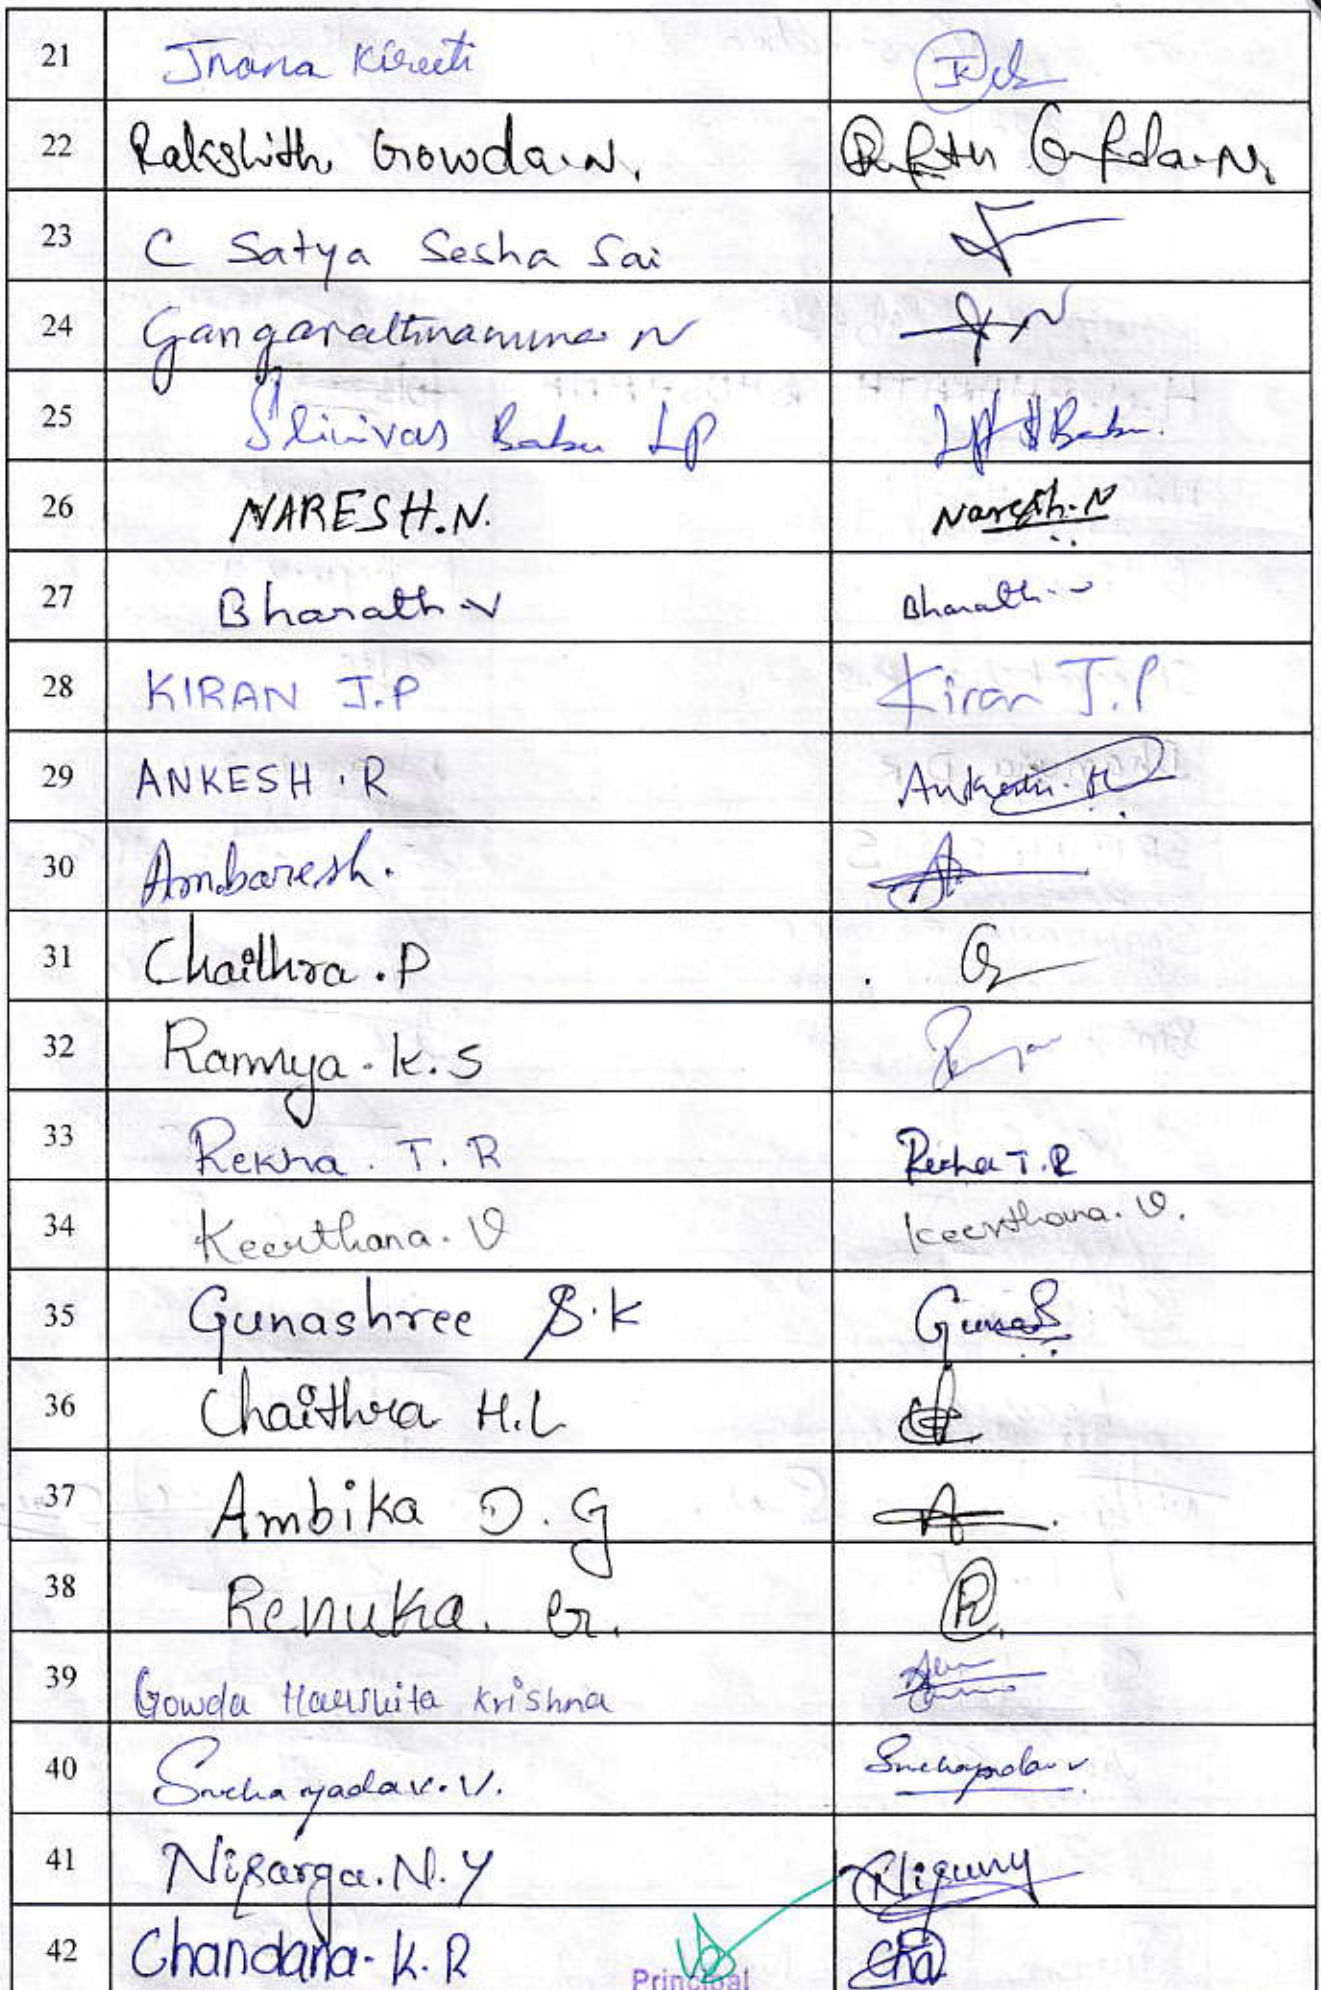 21 Jnana Kireeti
22 Rakshith Gowda.N.
23 C Satya Sesha Sai
24 Gangarathnamma N
25 Srinivas Babu LP
26 NARESH.N. Naresh.N
27 Bharath.V Bharath.v
28 KIRAN J.P Kiran J.P
29 ANKESH.R Ankesh.R
30 Ambaresh.
31 Chaithra.P
32 Ramya.K.S
33 Rekha.T.R Rekha T.R
34 Keerthana.V Keerthana.V.
35 Gunashree S.K
36 Chaithra H.L
37 Ambika D.G
38 Renuka. G.
39 Gowda Harshita Krishna
40 Sneha yadav.V. Snehayadav.v
41 Nisarga.N.Y
42 Chandana.K.R
Principal